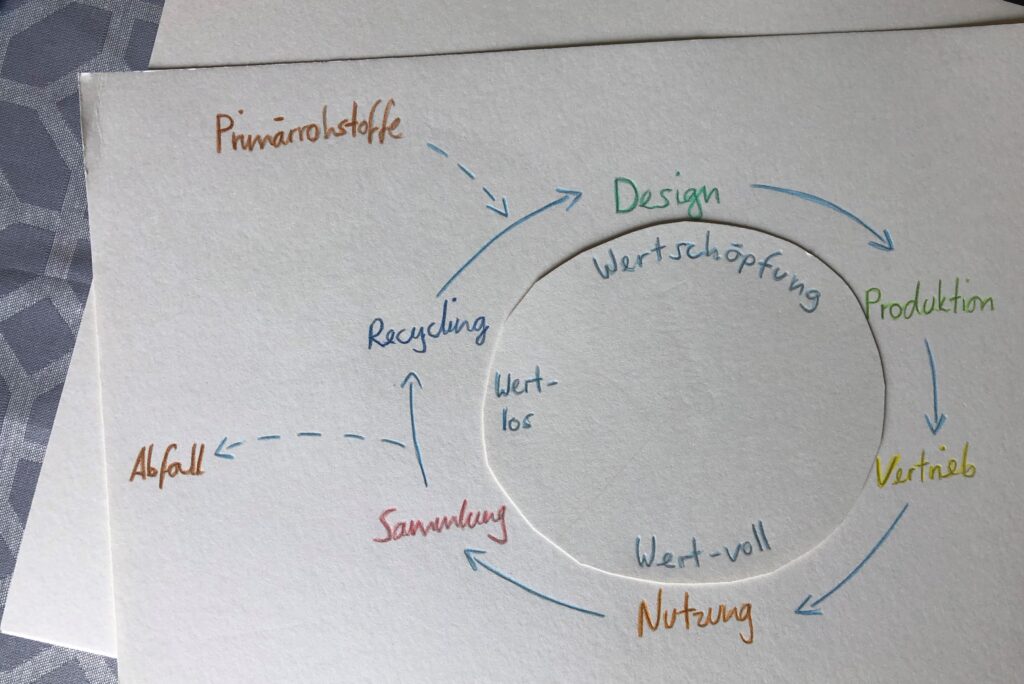 Primärrohstoffe
Design
Wertschöpfung
Produktion
Recycling
Wert-
los
Abfall
Vertrieb
Sammlung
Wert-voll
Nutzung